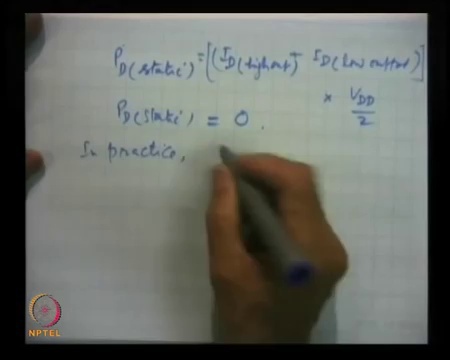 P_D(static) = [(I_D(high out) + I_D(low output)]
× V_DD/2
P_D(static) = 0.
In practice,
NPTEL